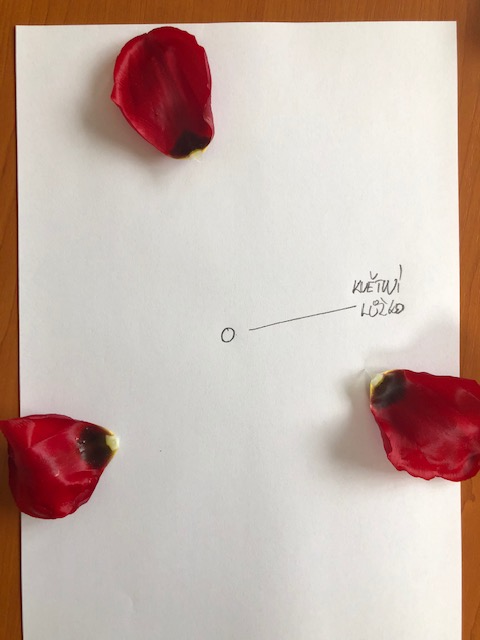 KVĚTNÍ
LŮŽKO